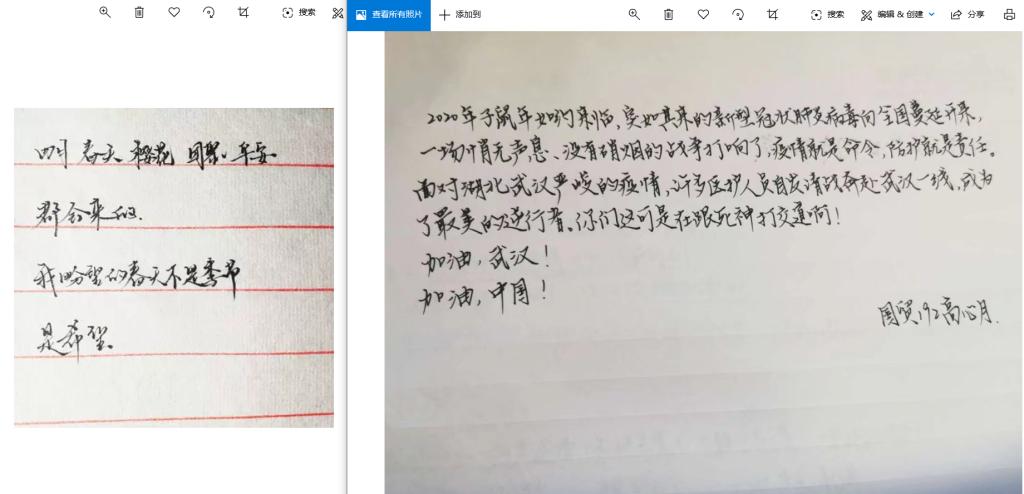 搜索
查看所有照片
添加到
搜索
编辑 & 创建
分享
四月 春天 樱花 团聚 平安
都会来的.
我盼望的春天不是季节
是希望.
2020年子鼠年如约来临,突如其来的新型冠状肺炎病毒向全国蔓延开来,
一场悄无声息、没有硝烟的战争打响了,疫情就是命令,防护就是责任。
面对湖北武汉严峻的疫情,许多医护人员自发请战奔赴武汉一线,成为
了最美的逆行者。你们这可是在跟死神打交道啊!
加油,武汉!
加油,中国!
国贸192高心月.